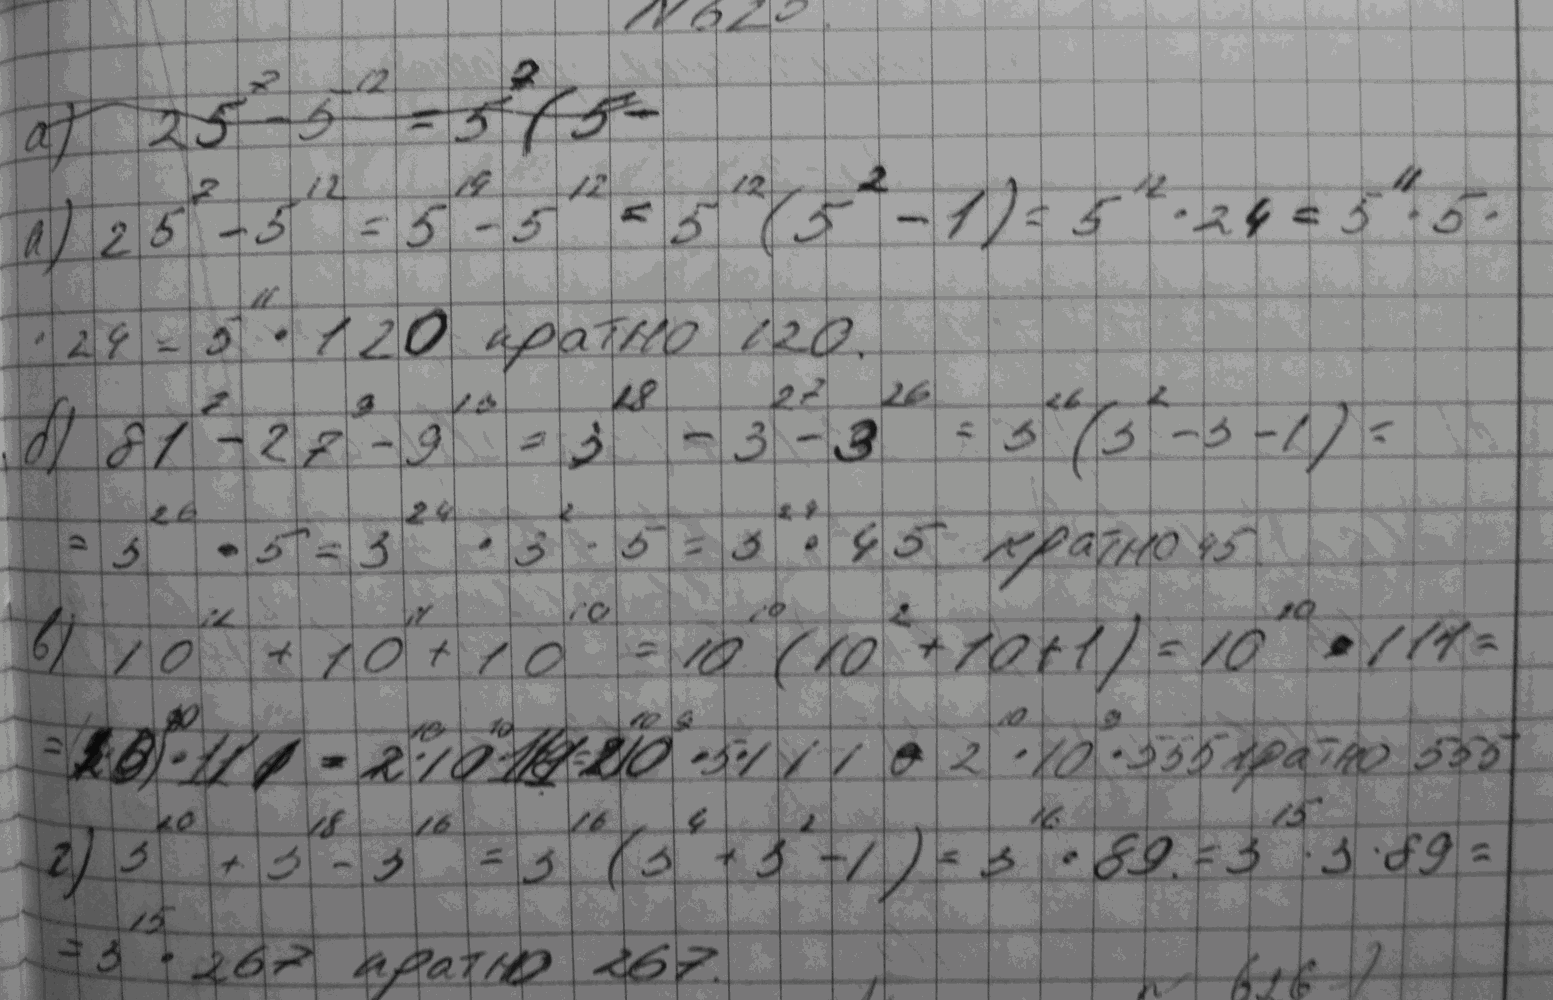 а) 25⁷ - 5¹² = 5² (5⁷ -
а) 25⁷ - 5¹² = 5¹⁴ - 5¹² = 5¹² (5² - 1) = 5¹² · 24 = 5¹¹ · 5 ·
· 24 = 5¹¹ · 120 кратно 120.
б) 81⁷ - 27⁹ - 9¹³ = 3²⁸ - 3²⁷ - 3²⁶ = 3²⁶ (3² - 3 - 1) =
= 3²⁶ · 5 = 3²⁴ · 3² · 5 = 3²⁴ · 45 кратно 45
в) 10¹² + 10¹¹ + 10¹⁰ = 10¹⁰ (10² + 10 + 1) = 10¹⁰ · 111 =
· 111 2 · 10⁹ · 555 кратно 555
г) 3²⁰ + 3¹⁸ - 3¹⁶ = 3¹⁶ (3⁴ + 3² - 1) = 3¹⁶ · 89. = 3¹⁵ · 3 · 89 =
= 3¹⁵ · 267 кратно 267.